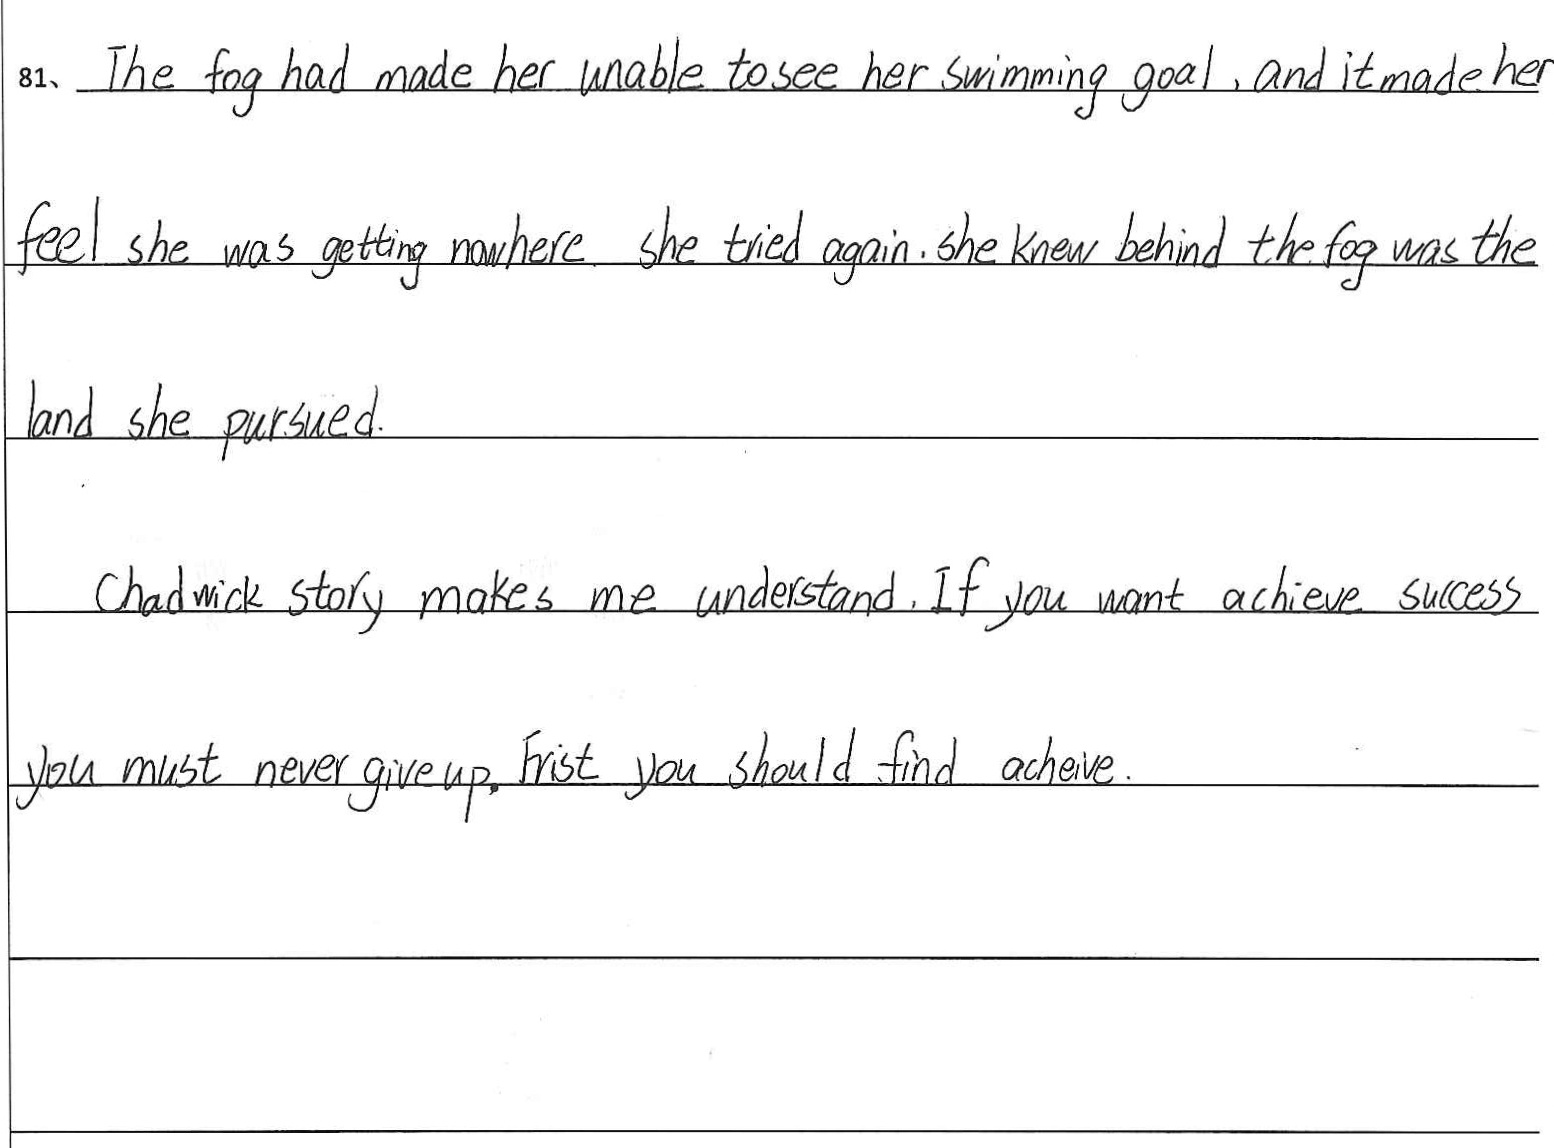 81、 The fog had made her unable to see her swimming goal, and it made her
feel she was getting nowhere. she tried again. she knew behind the fog was the
land she pursued.
Chadwick story makes me understand. If you want achieve success
you must never give up. Frist you should find acheive.